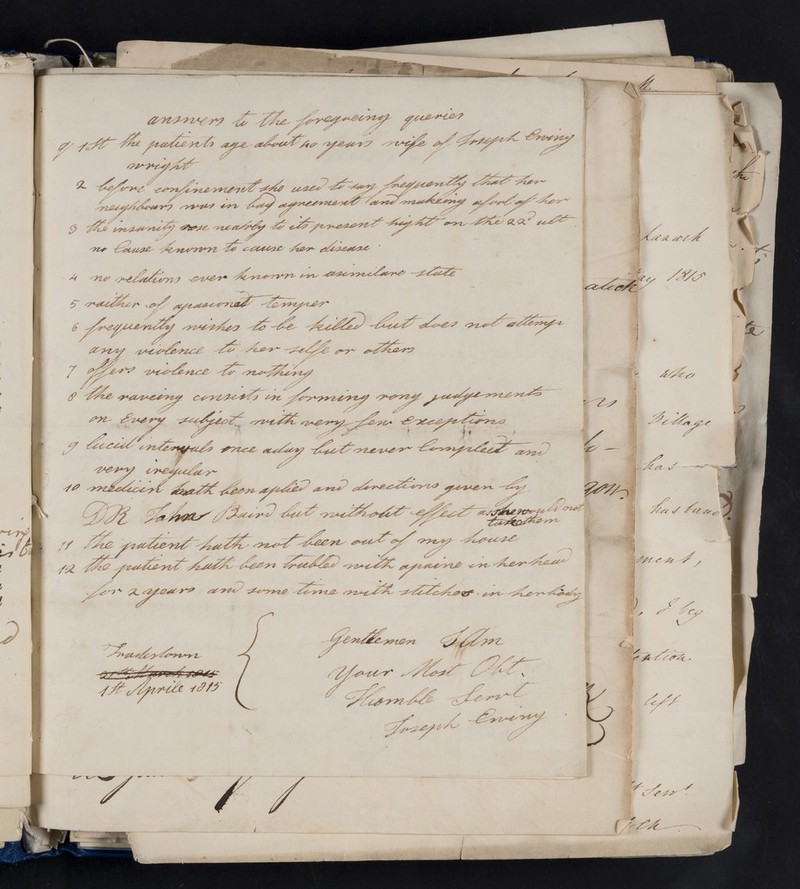 answers to the foregoeing queries
q 1st the patients age about 40 years wife of Joseph Erving
wright
2 before confinement she used to say frequently that her
neighbours was in bad agreement and makeing a fool of her
3 the insanity rose nearly to its present hight on the 22d ult
no Cause known to cause her disease
4 no relations ever known in asimilare state
5 raither of apasionet temper
6 frequently wishes to be killed but does not attemp
any violence to her selfe or others
7 offers violence to nothing
8 the raveing consists in forming rong judgements
on Every subject with very few exceptions
9 lucid intervals once aday but never Compleit and
very iregular
10 medicin hath been aplied and directions given by
DR John Baird but without effect as she would not
take them
11 the patient hath not been out of my house
12 the patient hath been trubled with apaine in her head
for 2 years and some time with stitches in her body
Gentlemen I Am
Your Most Obt.
Humble Servt
Joseph Erving
Tradestown
21st March 1815
1st Aprile 1815
1815
who
Village
has
ment,
I beg
left